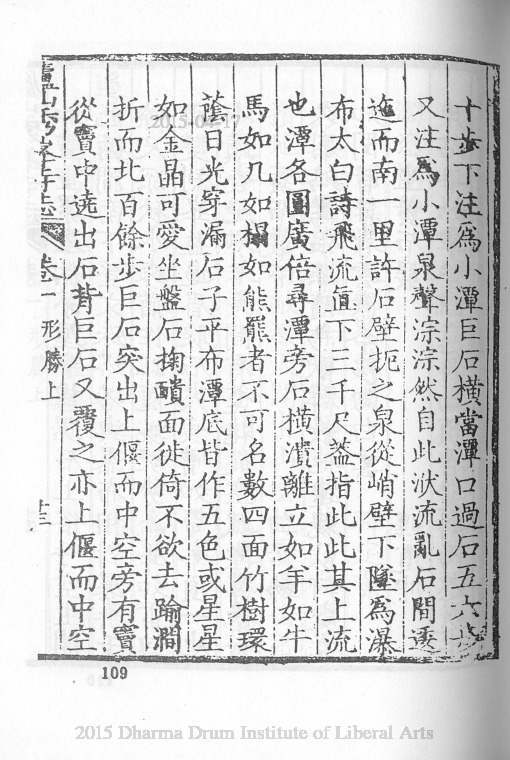 十步下注爲小潭巨石橫當潭口過石五六步
又注爲小潭泉聲淙淙然自此洑流亂石間逶
迤而南一里許石壁扼之泉從峭壁下墜爲瀑
布太白詩飛流直下三千尺葢指此此其上流
也潭各圓廣倍尋潭旁石橫潰離立如羊如牛
馬如几如榻如熊羆者不可名數四面竹樹環
蔭日光穿漏石子平布潭底皆作五色或星星
如金晶可愛坐盤石掬靧面徙倚不欲去踰澗
折而北百餘步巨石突出上偃而中空旁有竇
從竇中遶出石背巨石又覆之亦上偃而中空
廬山秀峰寺志 卷一 形勝上 十三
109
2015 Dharma Drum Institute of Liberal Arts